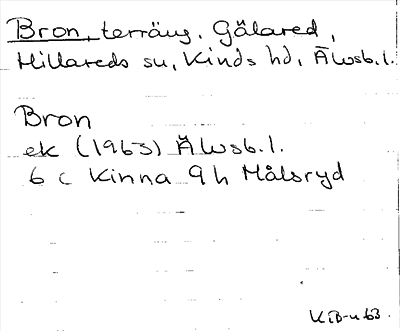 Bron, terräng. Gälared,
Hillareds sn, Kinds hd, Älvsb. l.
Bron
ek (1963) Älvsb. l.
6 c Kinna 9 h Målsryd
KiB-u 63.